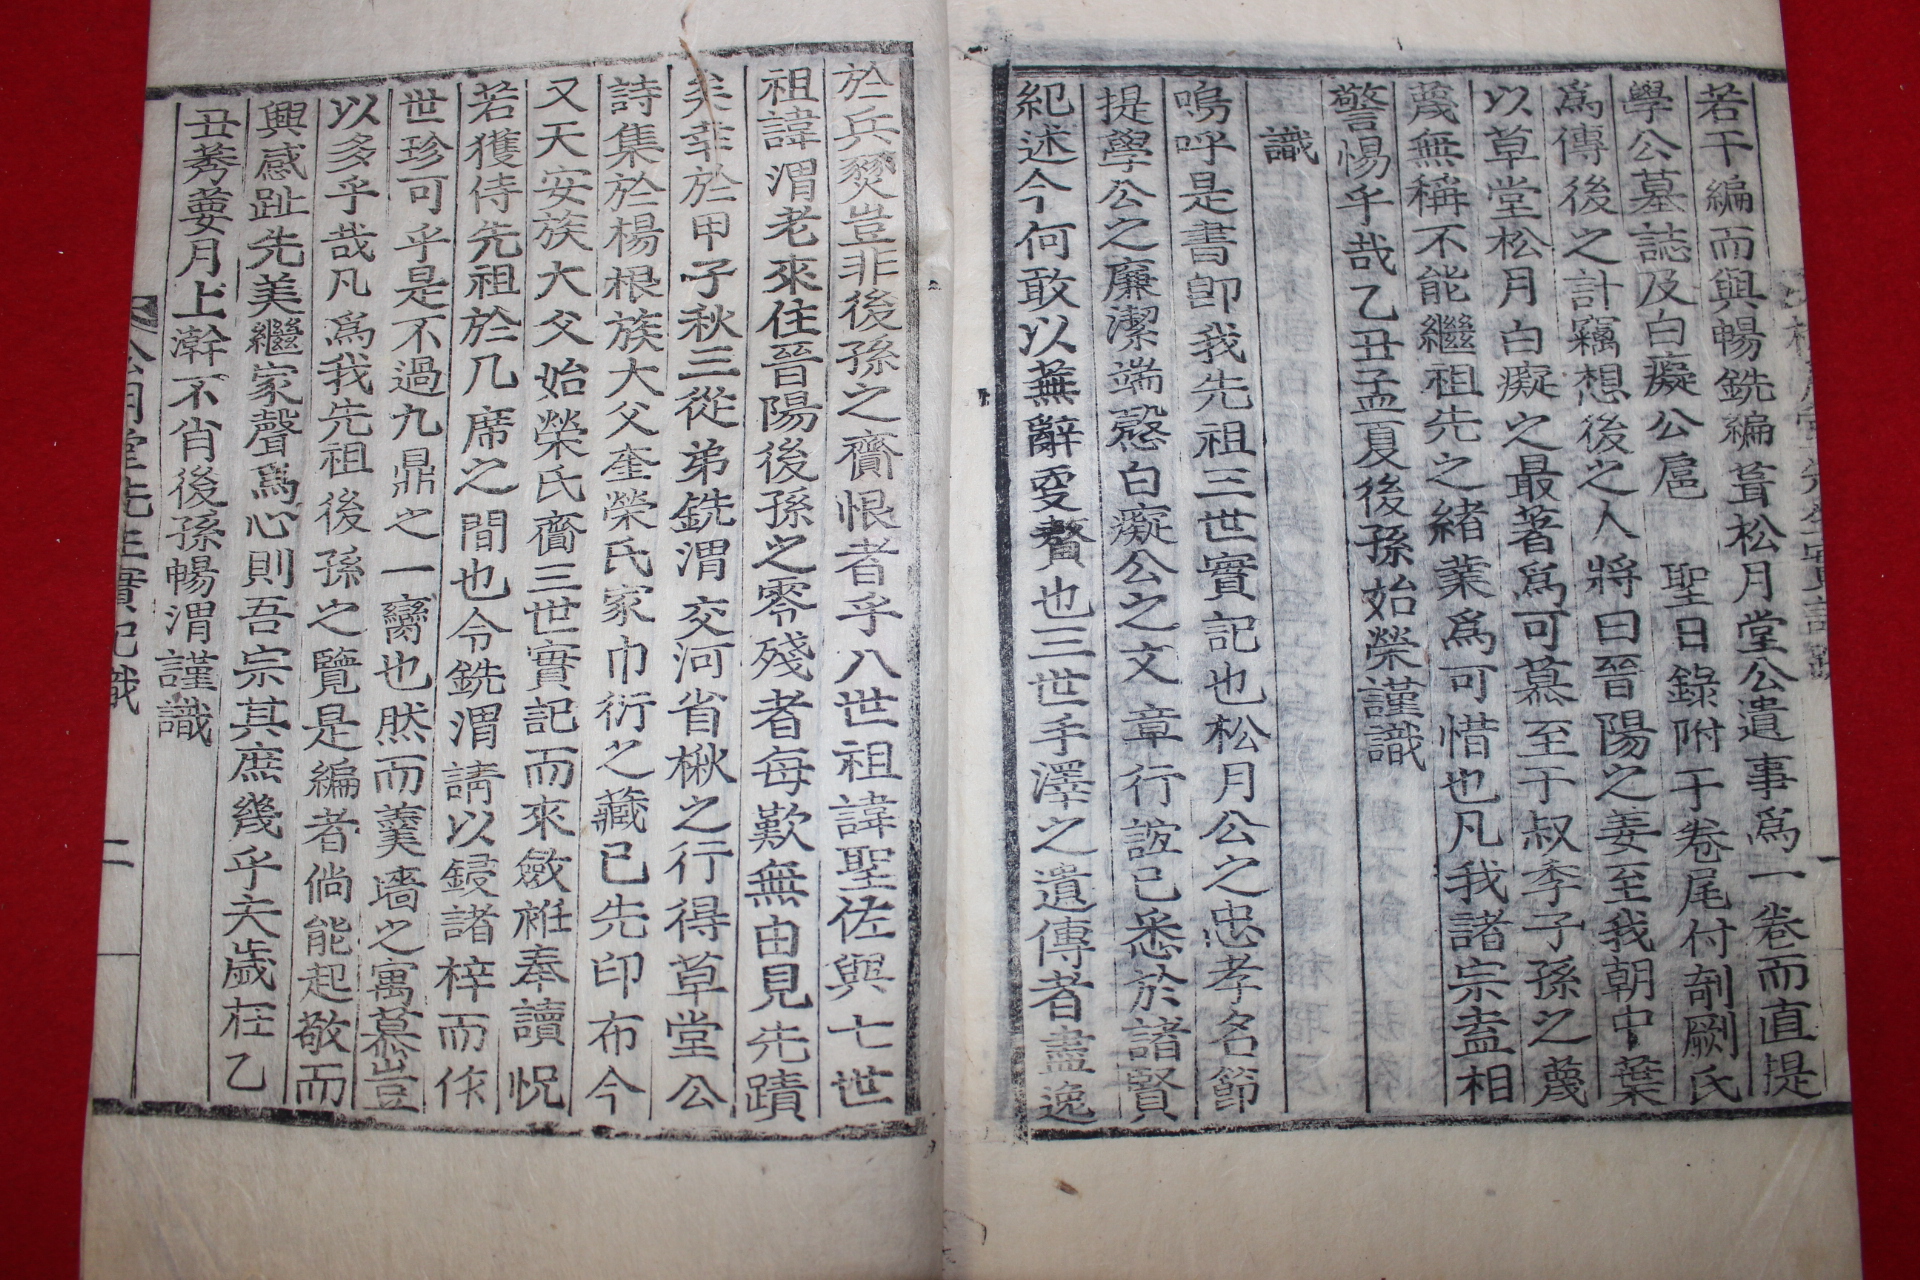 若干編而與暢銑編葺松月堂公遺事爲一卷而直提
學公墓誌及白癡公扈 聖日錄附于卷尾付剞劂氏
爲傳後之計竊想後之人將曰晉陽之姜至我朝中葉
以草堂松月白癡之最著爲可慕至于叔季子孫之蔑
蔑無稱不能繼祖先之緖業爲可惜也凡我諸宗盍相
警惕乎哉乙丑孟夏後孫始榮謹識
識
嗚呼是書卽我先祖三世實記也松月公之忠孝名節
提學公之廉潔端慤白癡公之文章行誼已悉於諸賢
紀述今何敢以蕪辭更贅也三世手澤之遺傳者盡逸
於兵燹豈非後孫之齎恨者乎八世祖諱聖佐與七世
祖諱渭老來住晉陽後孫之零殘者每歎無由見先蹟
矣幸於甲子秋三從弟銑渭交河省楸之行得草堂公
詩集於楊根族大父奎榮氏家巾衍之藏已先印布今
又天安族大父始榮氏齎三世實記而來斂衽奉讀怳
若獲侍先祖於几席之間也令銑渭請以鋟諸梓而作
世珍可乎是不過九鼎之一臠也然而羹墻之寓慕豈
以多乎哉凡爲我先祖後孫之覽是編者倘能起敬而
興感趾先美繼家聲爲心則吾宗其庶幾乎夫歲在乙
丑莠葽月上澣不肖後孫暢渭謹識
松月堂先生實記識 二